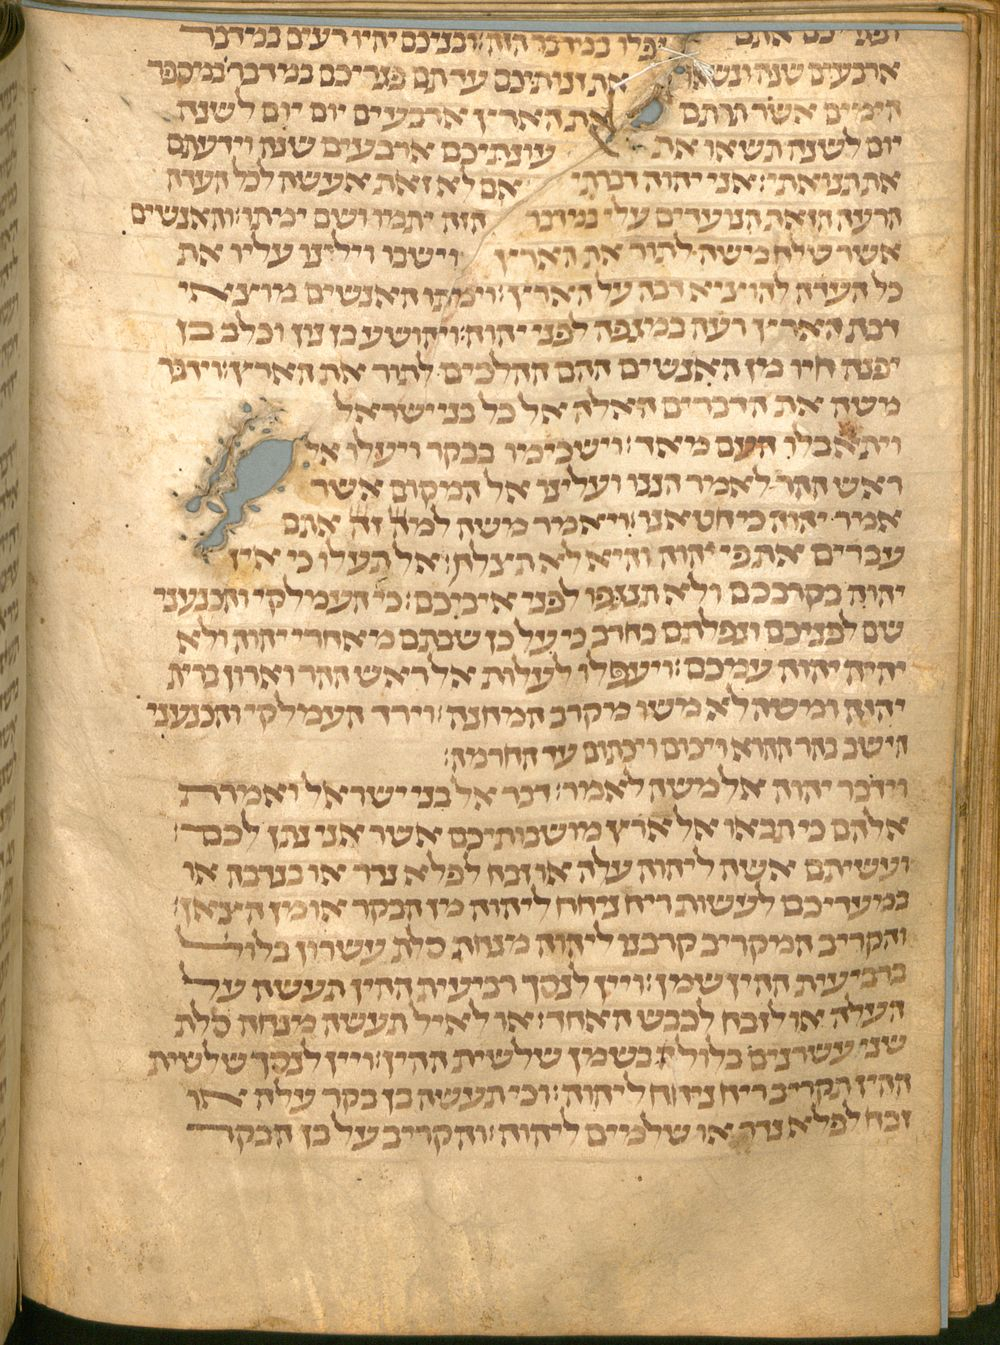 ופגריכם אתם יפלו במדבר הזה׃ ובניכם יהיו רעים במדבר
ארבעים שנה ונשאו את זנותיכם עד תם פגריכם במדבר׃ במספר
הימים אשר תרתם את הארץ ארבעים יום יום לשנה
יום לשנה תשאו את עונתיכם ארבעים שנה וידעתם
את תנואתי׃ אני יהוה דברתי אם לא זאת אעשה לכל העדה
הרעה הזאת הנועדים עלי במדבר הזה יתמו ושם ימתו׃ והאנשים
אשר שלח משה לתור את הארץ וישבו וילינו עליו את
כל העדה להוציא דבה על הארץ׃ וימתו האנשים מוציאי
דבת הארץ רעה במגפה לפני יהוה׃ ויהושע בן נון וכלב בן
יפנה חיו מן האנשים ההם ההלכים לתור את הארץ׃ וידבר
משה את הדברים האלה אל כל בני ישראל
ויתאבלו העם מאד׃ וישכימו בבקר ויעלו אל
ראש ההר לאמר הננו ועלינו אל המקום אשר
אמר יהוה כי חטאנו׃ ויאמר משה למה זה אתם
עברים את פי יהוה והיא לא תצלח׃ אל תעלו כי אין
יהוה בקרבכם ולא תנגפו לפני איביכם׃ כי העמלקי והכנעני
שם לפניכם ונפלתם בחרב כי על כן שבתם מאחרי יהוה ולא
יהיה יהוה עמכם׃ ויעפלו לעלות אל ראש ההר וארון ברית
יהוה ומשה לא משו מקרב המחנה׃ וירד העמלקי והכנעני
הישב בהר ההוא ויכום ויכתום עד החרמה׃
וידבר יהוה אל משה לאמר׃ דבר אל בני ישראל ואמרת
אלהם כי תבאו אל ארץ מושבותיכם אשר אני נתן לכם׃
ועשיתם אשה ליהוה עלה או זבח לפלא נדר או בנדבה או
במעדיכם לעשות ריח ניחח ליהוה מן הבקר או מן הצאן׃
והקריב המקריב קרבנו ליהוה מנחה סלת עשרון בלול
ברביעית ההין שמן׃ ויין לנסך רביעית ההין תעשה על
העלה או לזבח לכבש האחד׃ או לאיל תעשה מנחה סלת
שני עשרנים בלולה בשמן שלשית ההין׃ ויין לנסך שלשית
ההין תקריב ריח ניחח ליהוה׃ וכי תעשה בן בקר עלה או
זבח לפלא נדר או שלמים ליהוה׃ והקריב על בן הבקר